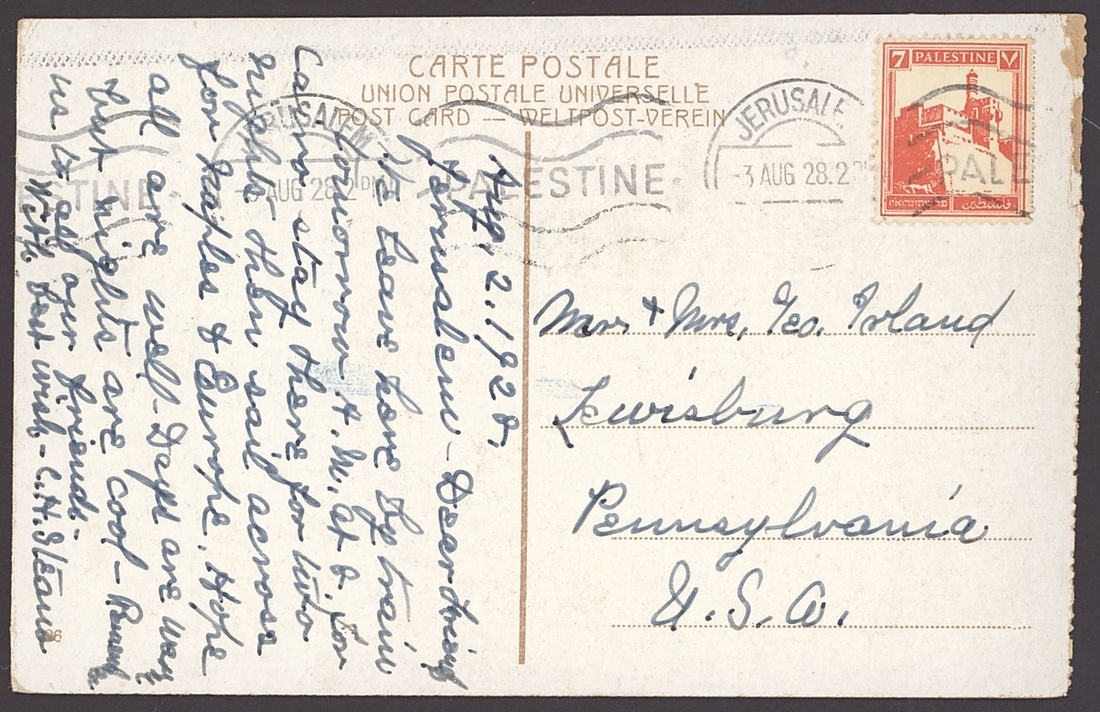 CARTE POSTALE
UNION POSTALE UNIVERSELLE
POST CARD — WELTPOST-VEREIN
JERUSALEM
-3 AUG 28.2 PM
PALESTINE
JERUSALE
-3 AUG 28.2 P
PALE
STINE
7 PALESTINE ٧
פלשתינה א״י فلسطين
Aug. 2. 1928.
Jerusalem - Dear
We leave here by train
tomorrow A.M. at 8. for
Cairo stay there for two
nights then sail across
for Naples & Europe. Hope
all are well - Days are very
hot nights are cool -
us to all our friends -
With best wish - C.H. Stearns
Mr. & Mrs. Geo. Irland
Lewisburg
Pennsylvania
U.S.A.
36